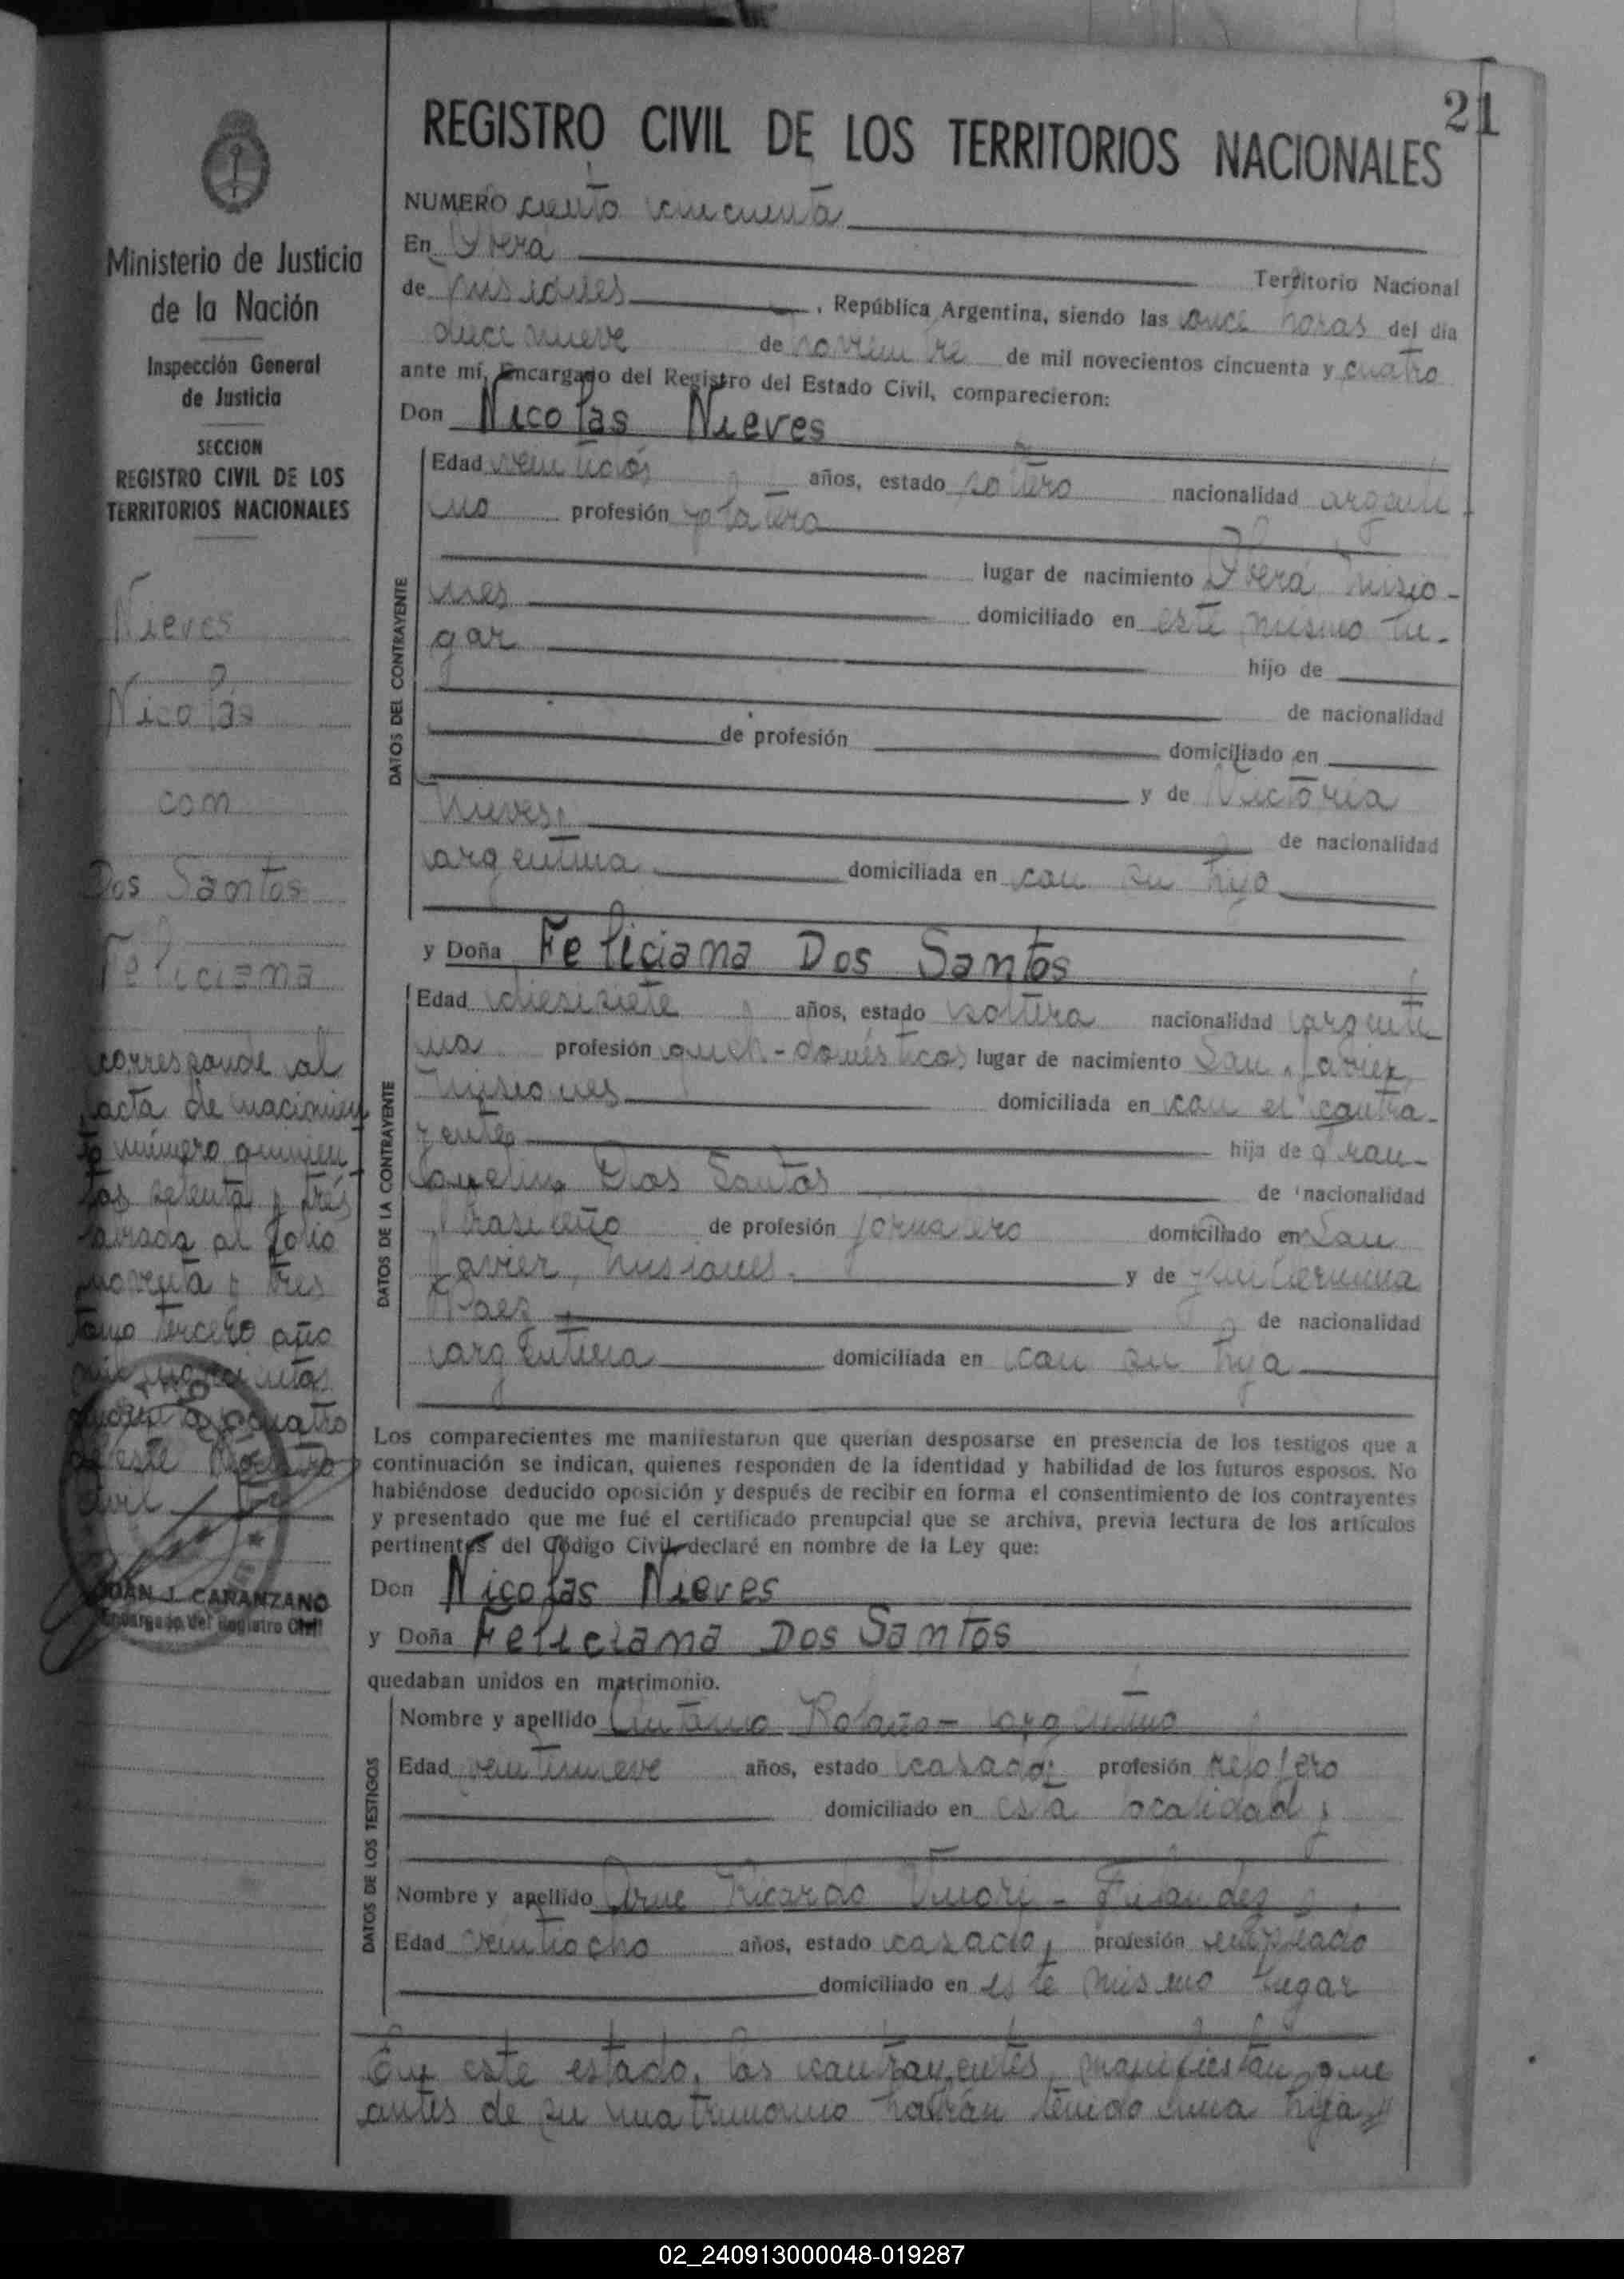 21
REGISTRO CIVIL DE LOS TERRITORIOS NACIONALES
Ministerio de Justicia
de la Nación
Inspección General
de Justicia
SECCION
REGISTRO CIVIL DE LOS
TERRITORIOS NACIONALES
Nieves
Nicolás
con
Dos Santos
Feliciana
corresponde al
acta de nacimien
to número quinien
tos setenta y tres
labrada al folio
noventa y tres
tomo tercero año
mil novecientos
cuatro
de este Registro
Civil
JUAN J. CARANZANO
Encargado del Registro Civil
NUMERO ciento cincuenta
En Oberá Territorio Nacional
de Misiones, República Argentina, siendo las once horas del día
diecinueve de noviembre de mil novecientos cincuenta y cuatro
ante mí, Encargado del Registro del Estado Civil, comparecieron:
Don Nicolas Nieves
DATOS DEL CONTRAYENTE
Edad veintidós años, estado soltero nacionalidad argenti
no profesión
lugar de nacimiento Oberá, Misio-
nes domiciliado en este mismo lu-
gar hijo de
de nacionalidad
de profesión domiciliado en
y de Victoria
Nieves, de nacionalidad
argentina domiciliada en con su hijo
y Doña Feliciana Dos Santos
DATOS DE LA CONTRAYENTE
Edad diesisiete años, estado soltera nacionalidad argenti
na profesión queh-domésticos lugar de nacimiento San Javier,
Misiones domiciliada en con el contra-
yente hija de
Dos Santos de nacionalidad
brasileño de profesión jornalero domiciliado en San
Javier, Misiones. y de Guillermina
Paez de nacionalidad
argentina domiciliada en con su hija
Los comparecientes me manifestaron que querían desposarse en presencia de los testigos que a
continuación se indican, quienes responden de la identidad y habilidad de los futuros esposos. No
habiéndose deducido oposición y después de recibir en forma el consentimiento de los contrayentes
y presentado que me fué el certificado prenupcial que se archiva, previa lectura de los artículos
pertinentes del Código Civil, declaré en nombre de la Ley que:
Don Nicolas Nieves
y Doña Feliciana Dos Santos
quedaban unidos en matrimonio.
DATOS DE LOS TESTIGOS
Nombre y apellido Antonio - argentino
Edad veintinueve años, estado casado; profesión relojero
domiciliado en esta localidad y
Nombre y apellido Arne Ricardo - Finlandez
Edad veintiocho años, estado casado, profesión empleado
domiciliado en este mismo lugar
En este estado, los contrayentes, manifiestan que
antes de su matrimonio habían tenido una hija
02_240913000048-019287